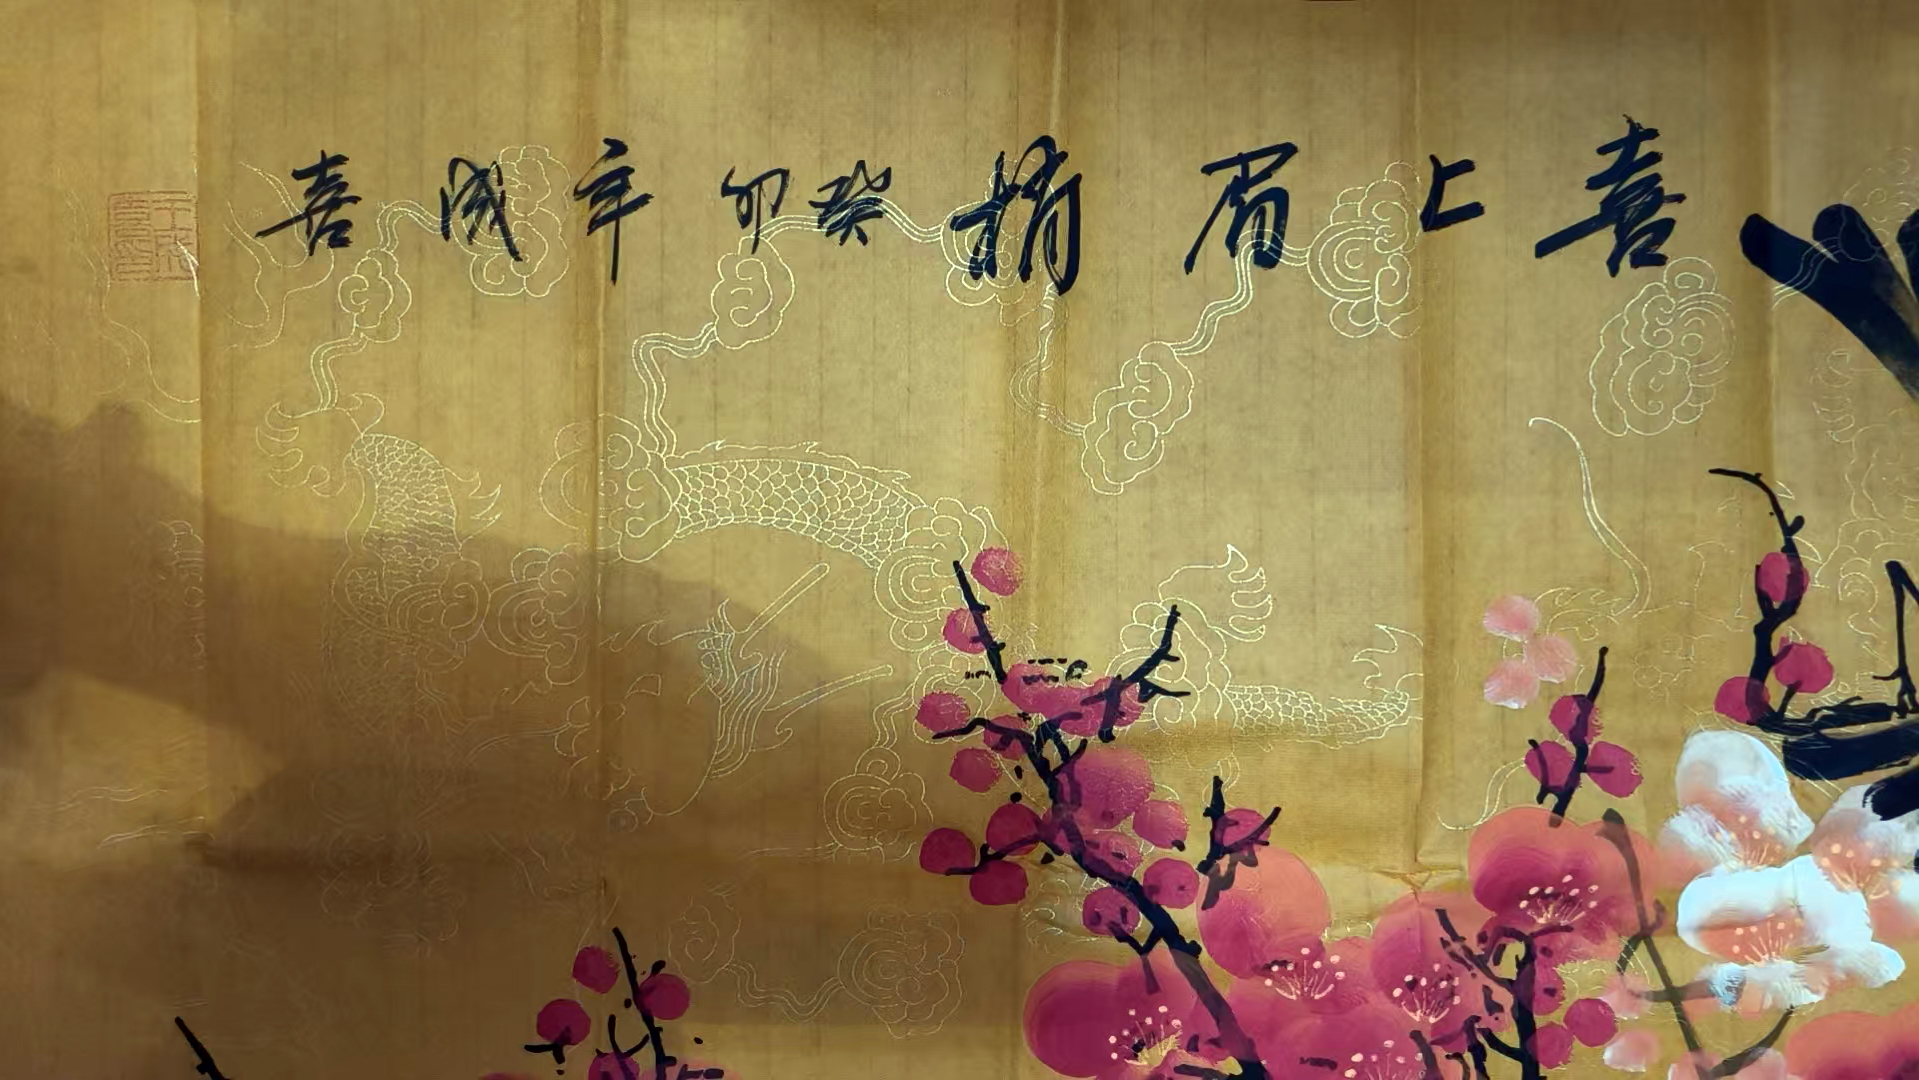 喜上眉梢 癸卯年 成喜